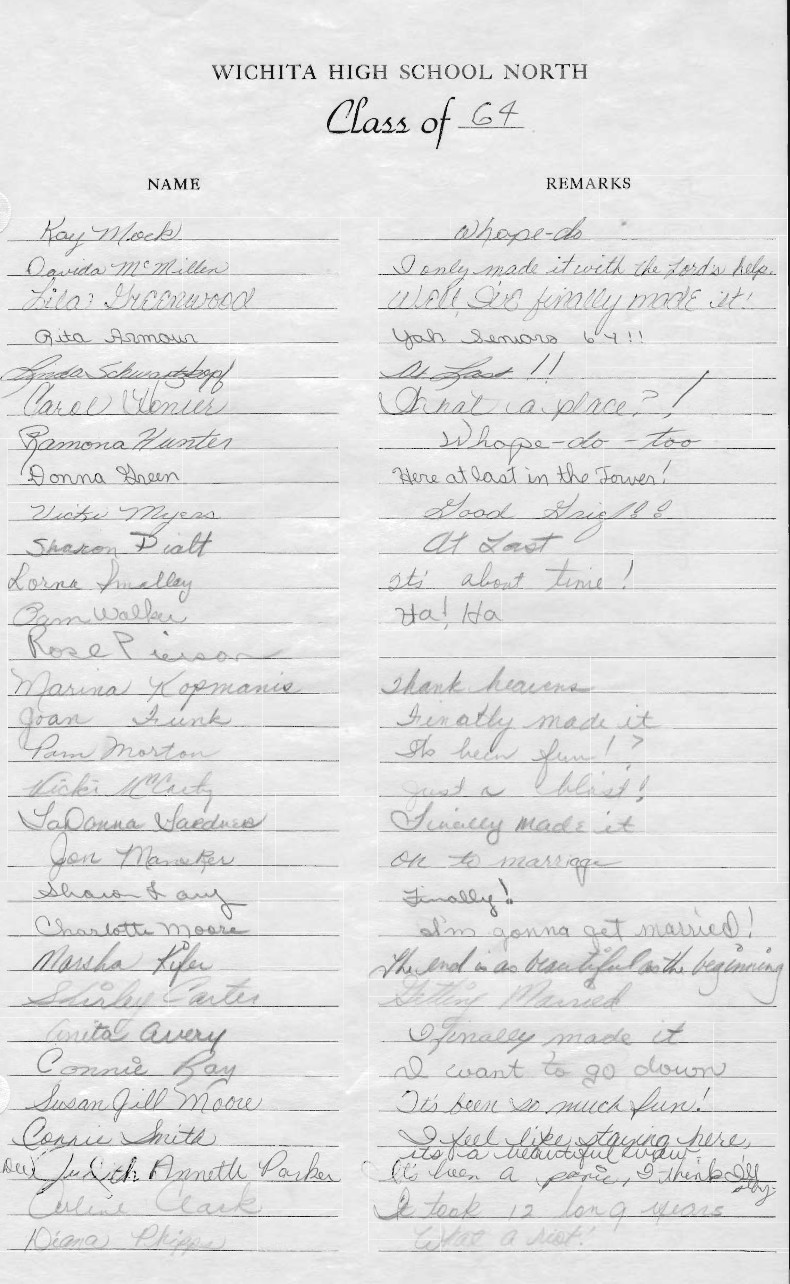 WICHITA HIGH SCHOOL NORTH
Class of 64
NAME REMARKS
Kay Mock Whope-do
Davida McMillen I only made it with the Lord's help.
Lila Greenwood Well, I've finally made it!
Rita Armour Yah Seniors 64!!
Lynda Schwartzkopf At Last!!
Carol What a place?!
Ramona Hunter Whope-do-too
Donna Green Here at last in the Tower!
Vicki Myers Good
Sharon At Last
Lorna Smalley It's about time!
Pam Walker Ha! Ha
Rose Pierson
Marina Kopmanis Thank heavens
Joan Funk Finally made it
Pam Morton It's been fun!?
Vicki McCarty Just a blast!
LaDonna Gardner Finally made it
Jon on to marriage
Sharon Finally!
Charlotte Moore I'm gonna get married!
Marsha Kifer The end is as beautiful as the beginning
Shirley Carter Getting Married
Anita Avery I Finally made it
Connie Ray I want to go down
Susan Jill Moore It's been so much fun!
Connie Smith I feel like staying here, its a beautiful view
Judith Annett Parker It's been a panic, I think I'll stay
Arlene Clark It took 12 long years
Diana Phipps What a riot!